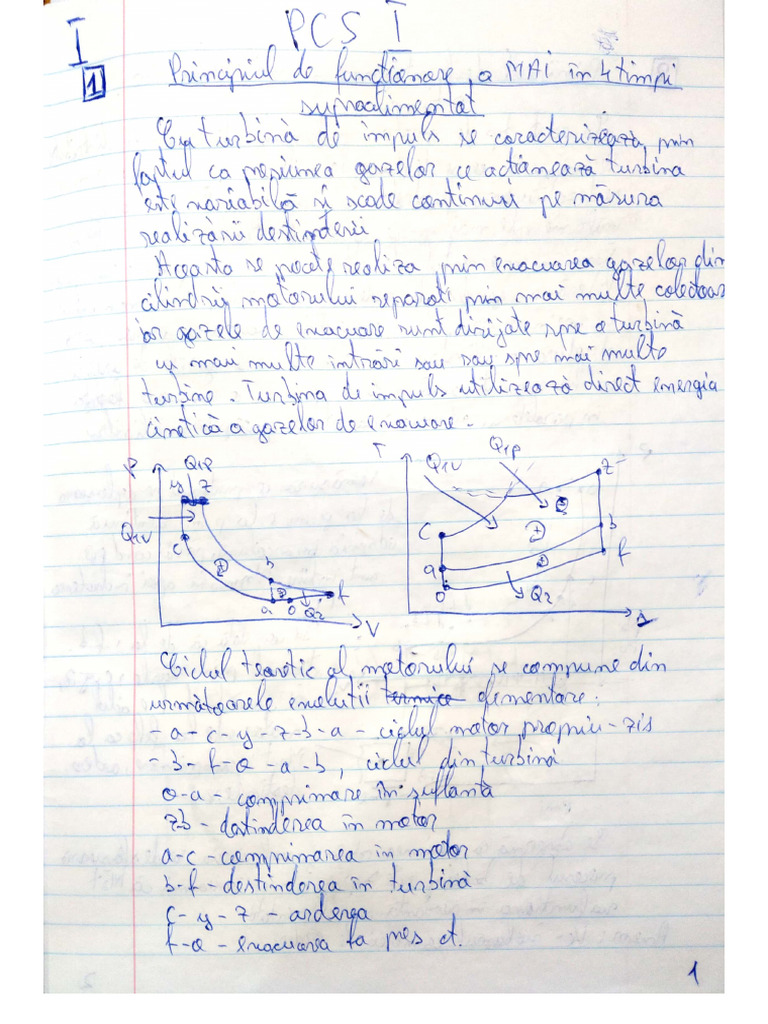 PCS I
I
1
Principiul de funcționare a MAI în 4 timpi
supraalimentat
Cu turbină de impuls se caracterizează prin
faptul ca presiunea gazelor ce acționează turbina
este variabilă și scade continuu pe măsura
realizării destinderii
Aceasta se poate realiza prin evacuarea gazelor din
cilindrii motorului separati prin mai multe colectoar
iar gazele de evacuare sunt dirijate spre o turbină
cu mai multe intrări sau sau spre mai multe
turbine. Turbina de impuls utilizează direct energia
cinetică a gazelor de evacuare.
P Q1p y z Q1v c 1 b a 2 o Q2 f V
T Q1v Q1p z c 1 b a 2 f o Q2 s
Ciclul teoretic al motorului se compune din
următoarele evolutii termice elementare:
- a - c - y - z - b - a - ciclul motor propriu-zis
- b - f - o - a - b, ciclul din turbină
o-a - comprimare în suflanta
zb - destinderea în motor
a-c - comprimarea în motor
b-f - destinderea în turbină
c - y - z - arderea
f-o - evacuarea la pres ct.
1